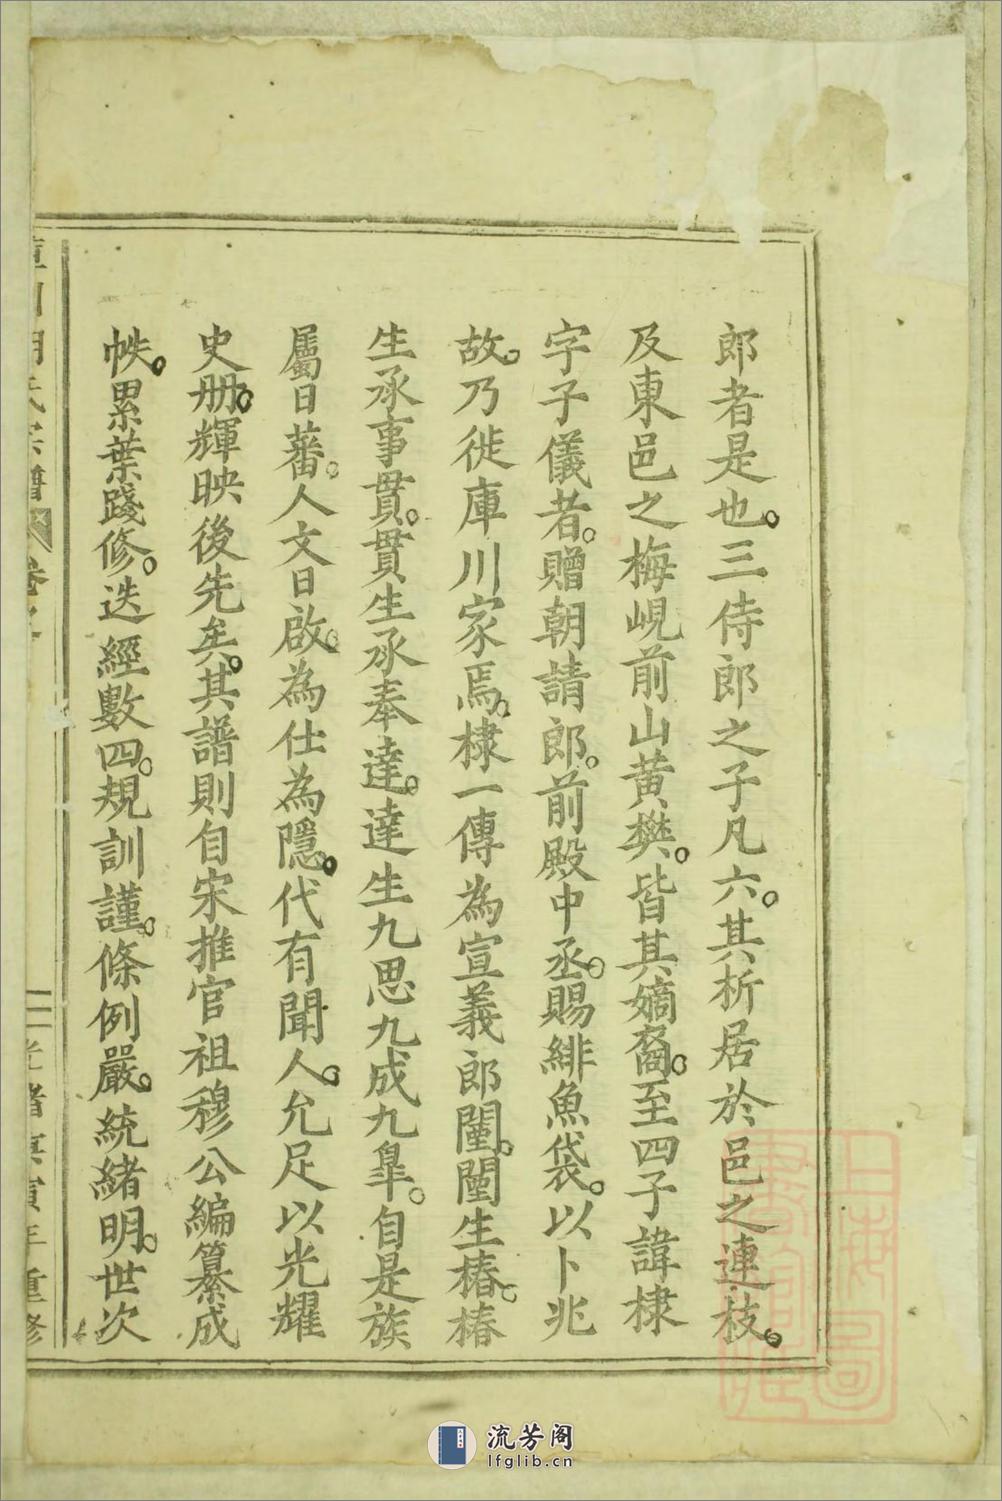 郎者是也三侍郎之子凡六其析居於邑之連枝
及東邑之梅峴前山黄樊皆其嫡裔至四子諱棣
字子儀者贈朝請郎前殿中丞賜緋魚袋以卜兆
故乃徙庫川家焉棣一傳為宣義郎闉闉生椿椿
生承事貫貫生承奉達達生九思九成九臯自是族
屬日蕃人文日啟為仕為隱代有聞人允足以光耀
史册輝映後先矣其譜則自宋推官祖穆公編纂成
帙累葉踐修迭經數四規訓謹條例嚴統緒明世次
川胡氏宗譜 卷之 光緒庚寅年重修
上海圖書館藏
流芳阁
lfglib.cn